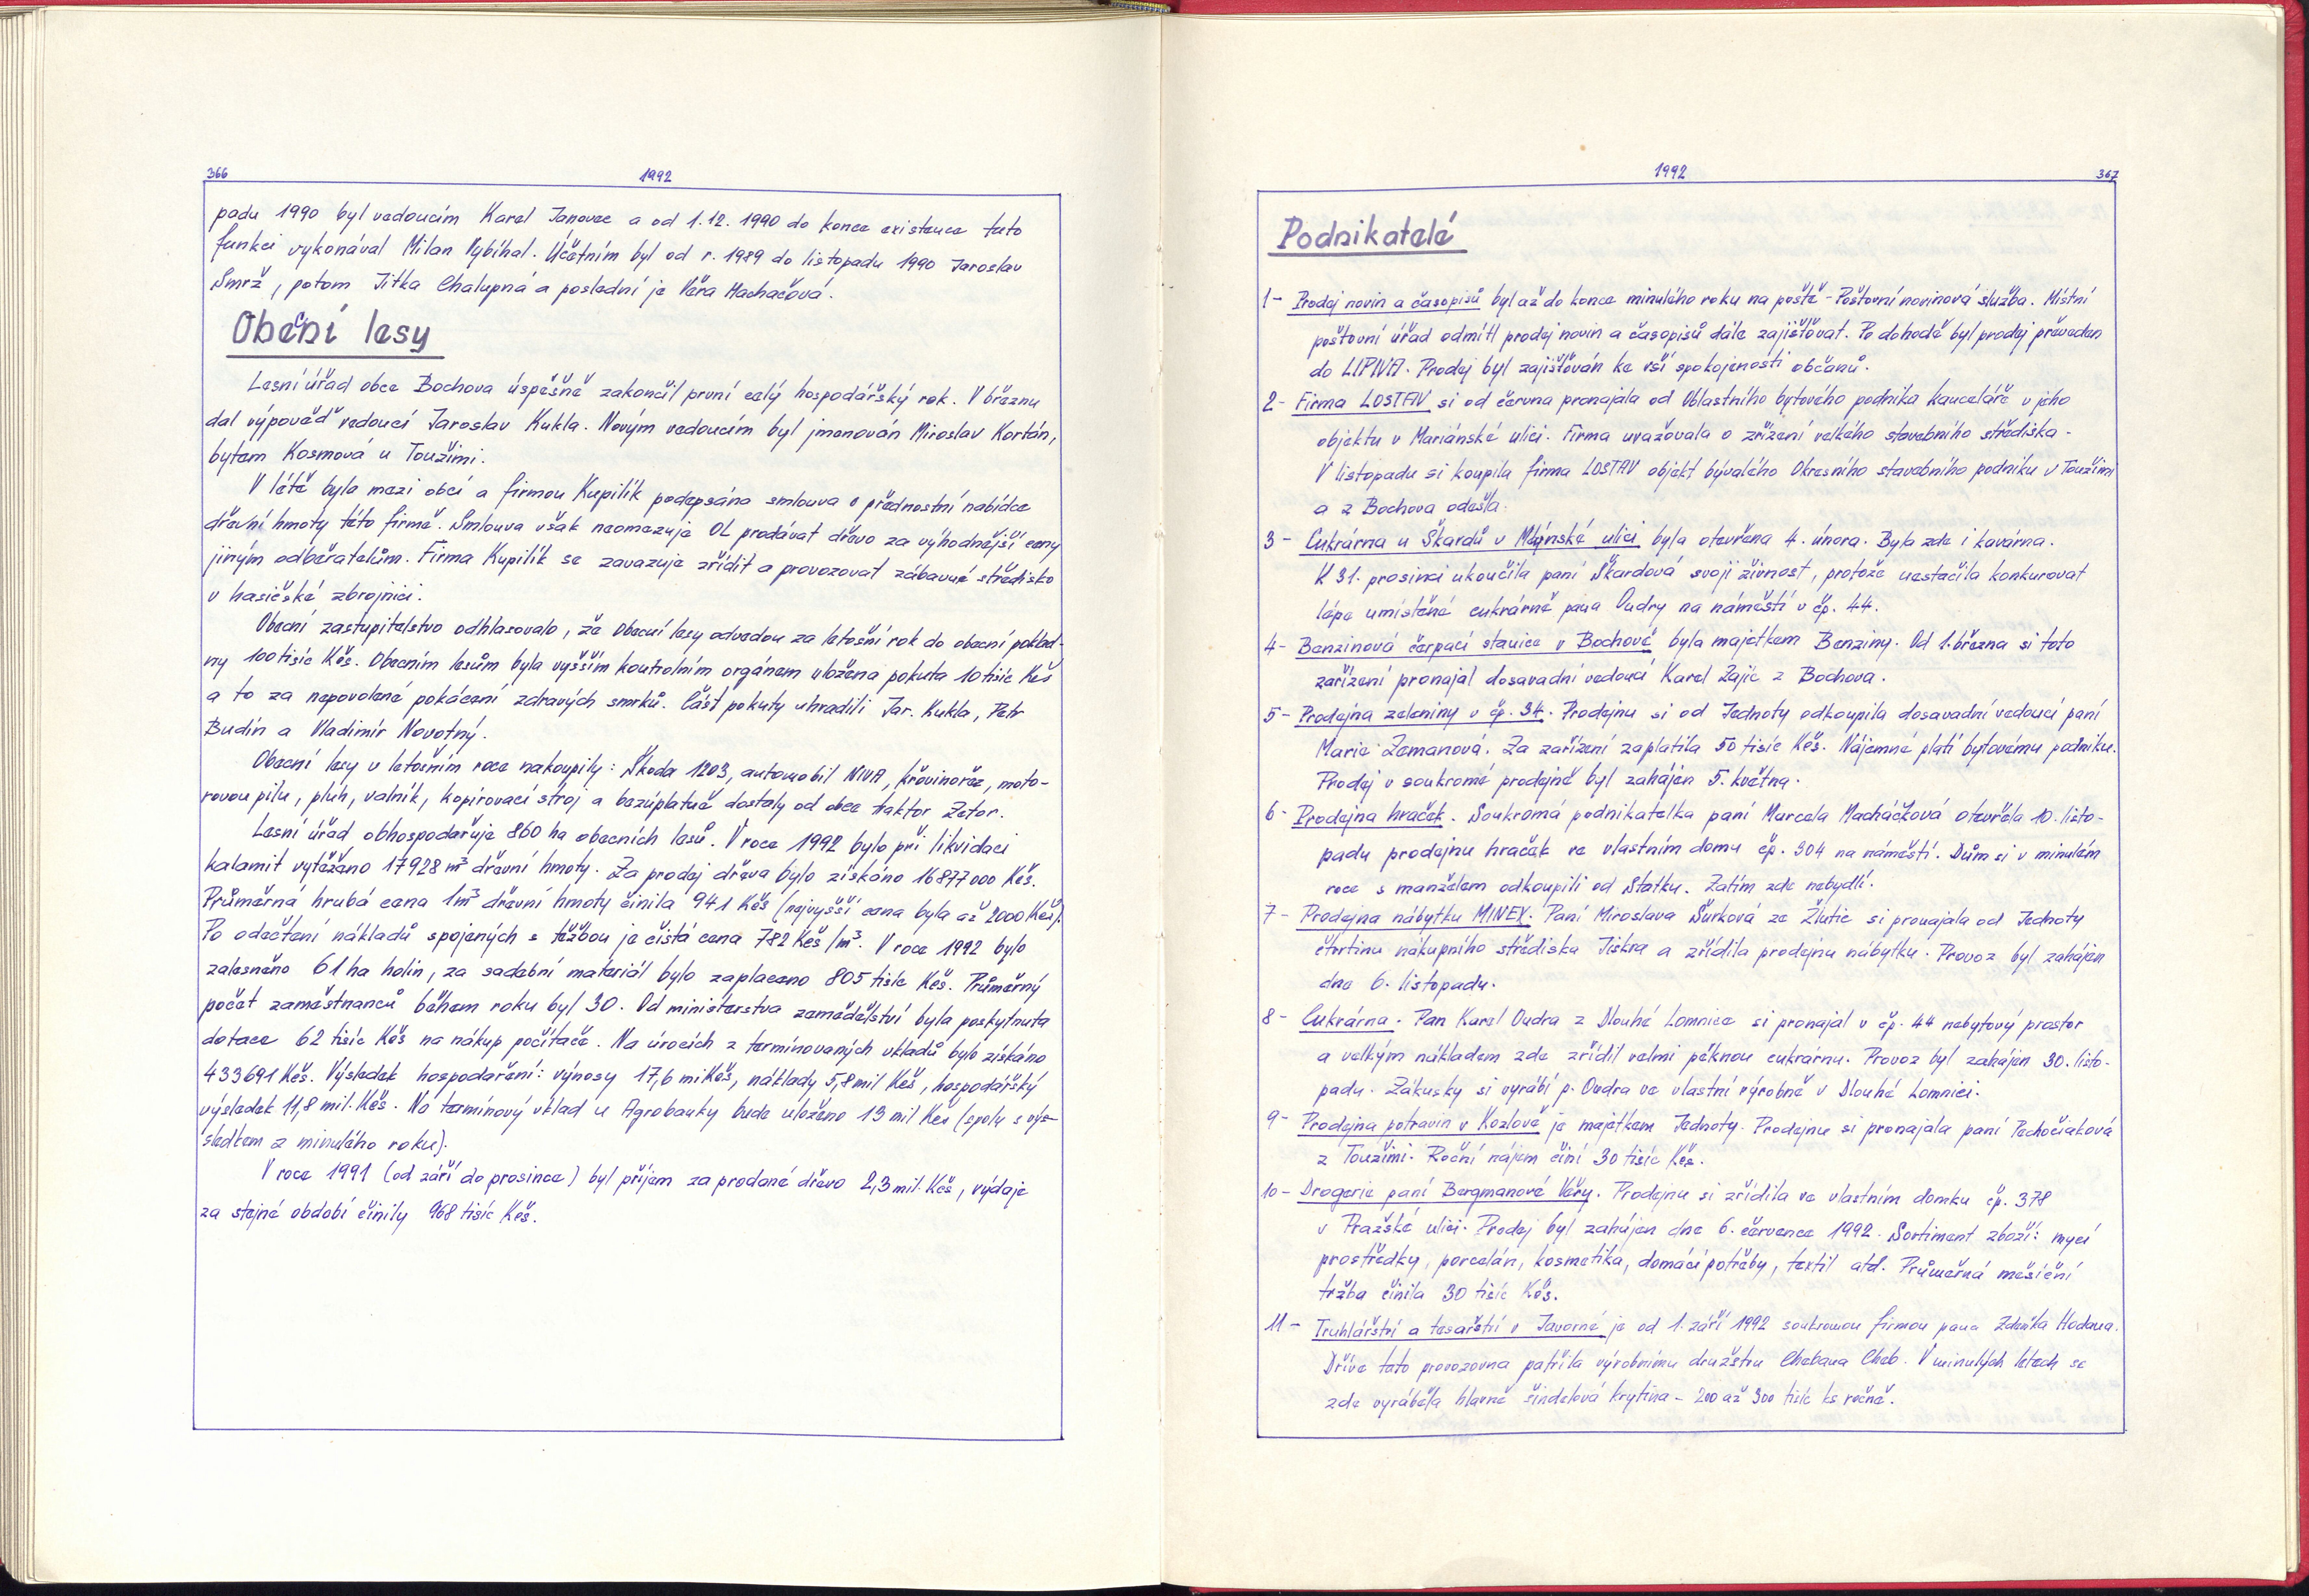 366
1992
padu 1990 byl vedoucím Karel Janovec a od 1.12. 1990 do konce existence tuto
funkci vykonával Milan Vybíhal. Účetním byl od r. 1989 do listopadu 1990 Jaroslav
Smrž, potom Jitka Chalupná a poslední je Věra Machačová.
Obecní lesy
Lesní úřad obce Bochova úspěšně zakončil první celý hospodářský rok. V březnu
dal výpověď vedoucí Jaroslav Kukla. Novým vedoucím byl jmenován Miroslav Kortán,
bytem Kosmová u Toužimi.
V létě byla mezi obcí a firmou Kupilík podepsána smlouva o přednostní nabídce
dřevní hmoty této firmě. Smlouva však neomezuje OL prodávat dřevo za výhodnější ceny
jiným odběratelům. Firma Kupilík se zavazuje zřídit a provozovat zábavné středisko
v hasičské zbrojnici.
Obecní zastupitelstvo odhlasovalo, že Obecní lesy odvedou za letošní rok do obecní poklad-
ny 100 tisíc Kčs. Obecním lesům byla vyšším kontrolním orgánem uložena pokuta 10 tisíc Kčs
a to za nepovolené pokácení zdravých smrků. Část pokuty uhradili Jar. Kukla, Petr
Budín a Vladimír Novotný.
Obecní lesy v letošním roce nakoupily: Škoda 1203, automobil NIVA, křovinořez, moto-
rovou pilu, pluh, valník, kopírovací stroj a bezúplatně dostaly od obce traktor Zetor.
Lesní úřad obhospodařuje 860 ha obecních lesů. V roce 1992 bylo při likvidaci
kalamit vytěženo 17928 m³ dřevní hmoty. Za prodej dřeva bylo získáno 16877000 Kčs.
Průměrná hrubá cena 1m³ dřevní hmoty činila 941 Kčs (nejvyšší cena byla až 2000 Kčs).
Po odečtení nákladů spojených s těžbou je čistá cena 782 Kčs/m³. V roce 1992 bylo
zalesněno 61 ha holin, za sadební materiál bylo zaplaceno 805 tisíc Kčs. Průměrný
počet zaměstnanců během roku byl 30. Od ministerstva zemědělství byla poskytnuta
dotace 62 tisíc Kčs na nákup počítače. Na úrocích z termínovaných vkladů bylo získáno
433691 Kčs. Výsledek hospodaření: výnosy 17,6 mil Kčs, náklady 5,8 mil Kčs, hospodářský
výsledek 11,8 mil. Kčs. Na termínový vklad u Agrobanky bude uloženo 13 mil Kčs (spolu s výs-
sledkem z minulého roku).
V roce 1991 (od září do prosince) byl příjem za prodané dřevo 2,3 mil. Kčs, výdaje
za stejné období činily 968 tisíc Kčs.
1992
367
Podnikatelé
1- Prodej novin a časopisů byl až do konce minulého roku na poště - Poštovní novinová služba. Místní
poštovní úřad odmítl prodej novin a časopisů dále zajišťovat. Po dohodě byl prodej převeden
do LIPIVA. Prodej byl zajišťován ke vší spokojenosti občanů.
2- Firma LOSTAV si od června pronajala od Oblastního bytového podnika kanceláře v jeho
objektu v Mariánské ulici. Firma uvažovala o zřízení velkého stavebního střediska.
V listopadu si koupila firma LOSTAV objekt bývalého Okresního stavebního podniku v Toužimi
a z Bochova odešla.
3- Cukrárna u Škardů v Mlýnské ulici byla otevřena 4. února. Byla zde i kavárna.
K 31. prosinci ukončila paní Škardová svoji živnost, protože nestačila konkurovat
lépe umístěné cukrárně pana Oudry na náměstí v čp. 44.
4- Benzinová čerpací stanice v Bochově byla majetkem Benziny. Od 1. března si toto
zařízení pronajal dosavadní vedoucí Karel Zajíc z Bochova.
5- Prodejna zeleniny v čp. 34. Prodejnu si od Jednoty odkoupila dosavadní vedoucí paní
Marie Zemanová. Za zařízení zaplatila 50 tisíc Kčs. Nájemné platí bytovému podniku.
Prodej v soukromé prodejně byl zahájen 5. května.
6- Prodejna hraček. Soukromá podnikatelka paní Marcela Macháčková otevřela 10. listo-
padu prodejnu hraček ve vlastním domu čp. 304 na náměstí. Dům si v minulém
roce s manželem odkoupili od Statku. Zatím zde nebydlí.
7- Prodejna nábytku MINEX. Paní Miroslava Šurková ze Žlutic si pronajala od Jednoty
čtvrtinu nákupního střediska Jiskra a zřídila prodejnu nábytku. Provoz byl zahájen
dne 6. listopadu.
8- Cukrárna. Pan Karel Oudra z Dlouhé Lomnice si pronajal v čp. 44 nebytový prostor
a velkým nákladem zde zřídil velmi pěknou cukrárnu. Provoz byl zahájen 30. listo-
padu. Zákusky si vyrábí p. Oudra ve vlastní výrobně v Dlouhé Lomnici.
9- Prodejna potravin v Kozlově je majetkem Jednoty. Prodejnu si pronajala paní Pechočiaková
z Toužimi. Roční nájem činí 30 tisíc Kčs.
10- Drogerie paní Bergmanové Věry. Prodejnu si zřídila ve vlastním domku čp. 378
v Pražské ulici. Prodej byl zahájen dne 6. července 1992. Sortiment zboží: mycí
prostředky, porcelán, kosmetika, domácí potřeby, textil atd. Průměrná měsíční
tržba činila 30 tisíc Kčs.
11- Truhlářství a tesařství v Javorné je od 1. září 1992 soukromou firmou pana Zdeňka Hodana.
Dříve tato provozovna patřila výrobnímu družstvu Chebana Cheb. V minulých letech se
zde vyráběla hlavně šindelová krytina - 200 až 300 tisíc ks ročně.